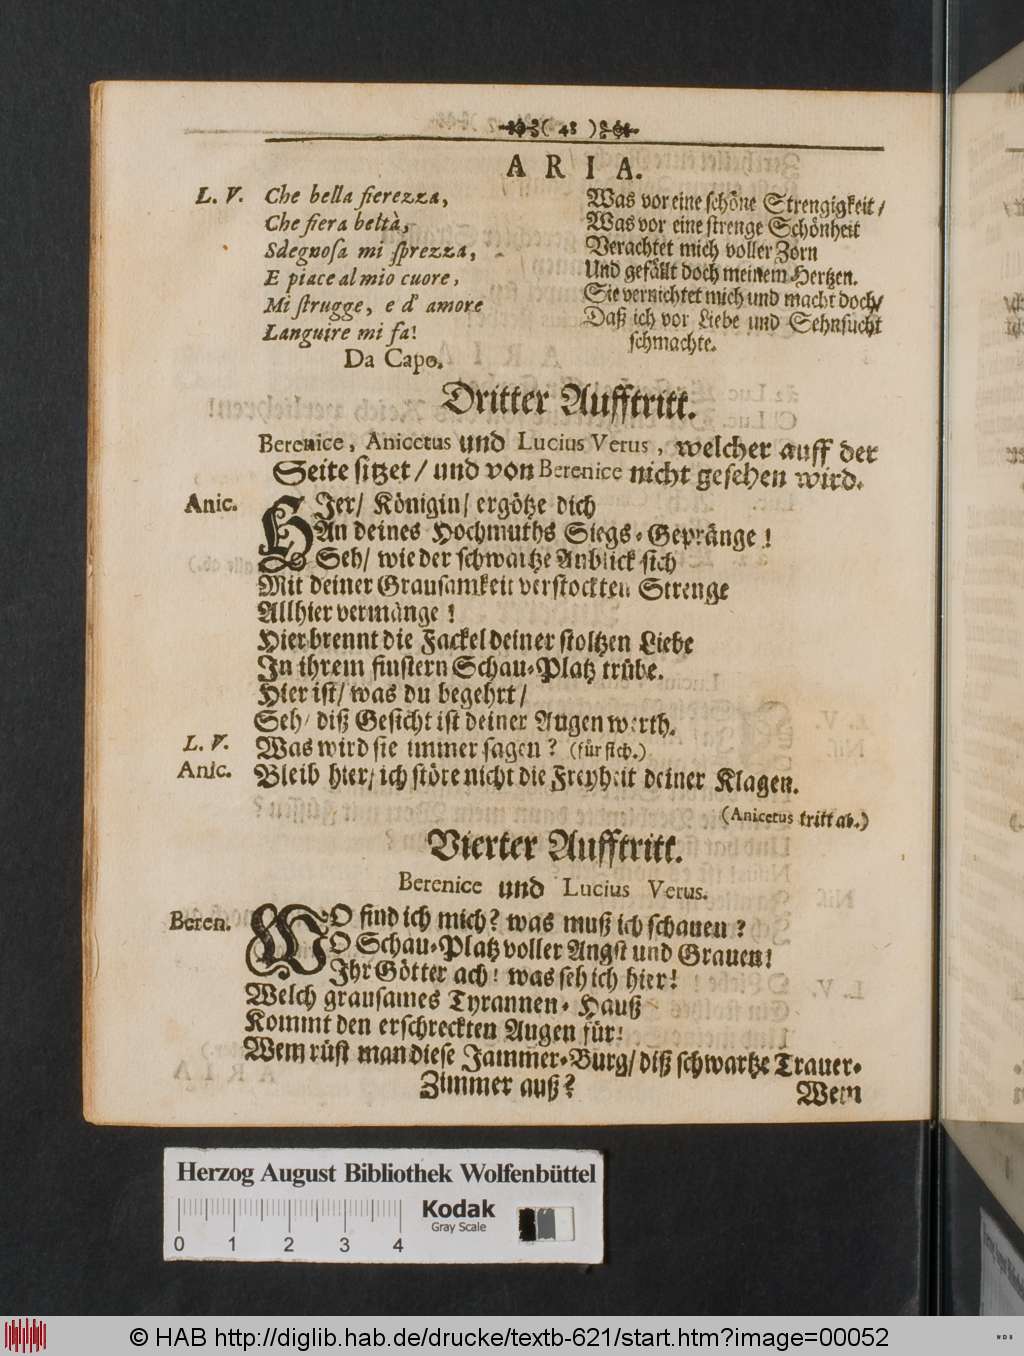 ( 48 )
ARIA.
L. V. Che bella fierezza,
Che fiera beltà,
Sdegnosa mi sprezza,
E piace al mio cuore,
Mi strugge, e d' amore
Languire mi fa!
Da Capo.
Was vor eine schöne Strengigkeit /
Was vor eine strenge Schönheit
Verachtet mich voller Zorn
Und gefällt doch meinem Hertzen.
Sie vernichtet mich und macht doch /
Daß ich vor Liebe und Sehnsucht
schmachte.
Dritter Aufftritt.
Berenice, Anicetus und Lucius Verus, welcher auff der
Seite sitzet / und von Berenice nicht gesehen wird.
Anic. HJer / Königin / ergötze dich
An deines Hochmuths Siegs-Gepränge!
Seh / wie der schwartze Anblick sich
Mit deiner Grausamkeit verstockten Strenge
Allhier vermänge!
Hier brennt die Fackel deiner stoltzen Liebe
In ihrem finstern Schau-Platz trübe.
Hier ist / was du begehrt /
Seh / diß Gesicht ist deiner Augen werth.
L. V. Was wird sie immer sagen? (für sich.)
Anic. Bleib hier / ich störe nicht die Freyheit deiner Klagen.
(Anicetus tritt ab.)
Vierter Aufftritt.
Berenice und Lucius Verus.
Beren. WO find ich mich? was muß ich schauen?
O Schau-Platz voller Angst und Grauen!
Ihr Götter ach! was seh ich hier!
Welch grausames Tyrannen-Hauß
Kommt den erschreckten Augen für!
Wem rüst man diese Jammer-Burg / diß schwartze Trauer-
Zimmer auß?
Wem
Herzog August Bibliothek Wolfenbüttel
Kodak
Gray Scale
0 1 2 3 4
© HAB http://diglib.hab.de/drucke/textb-621/start.htm?image=00052